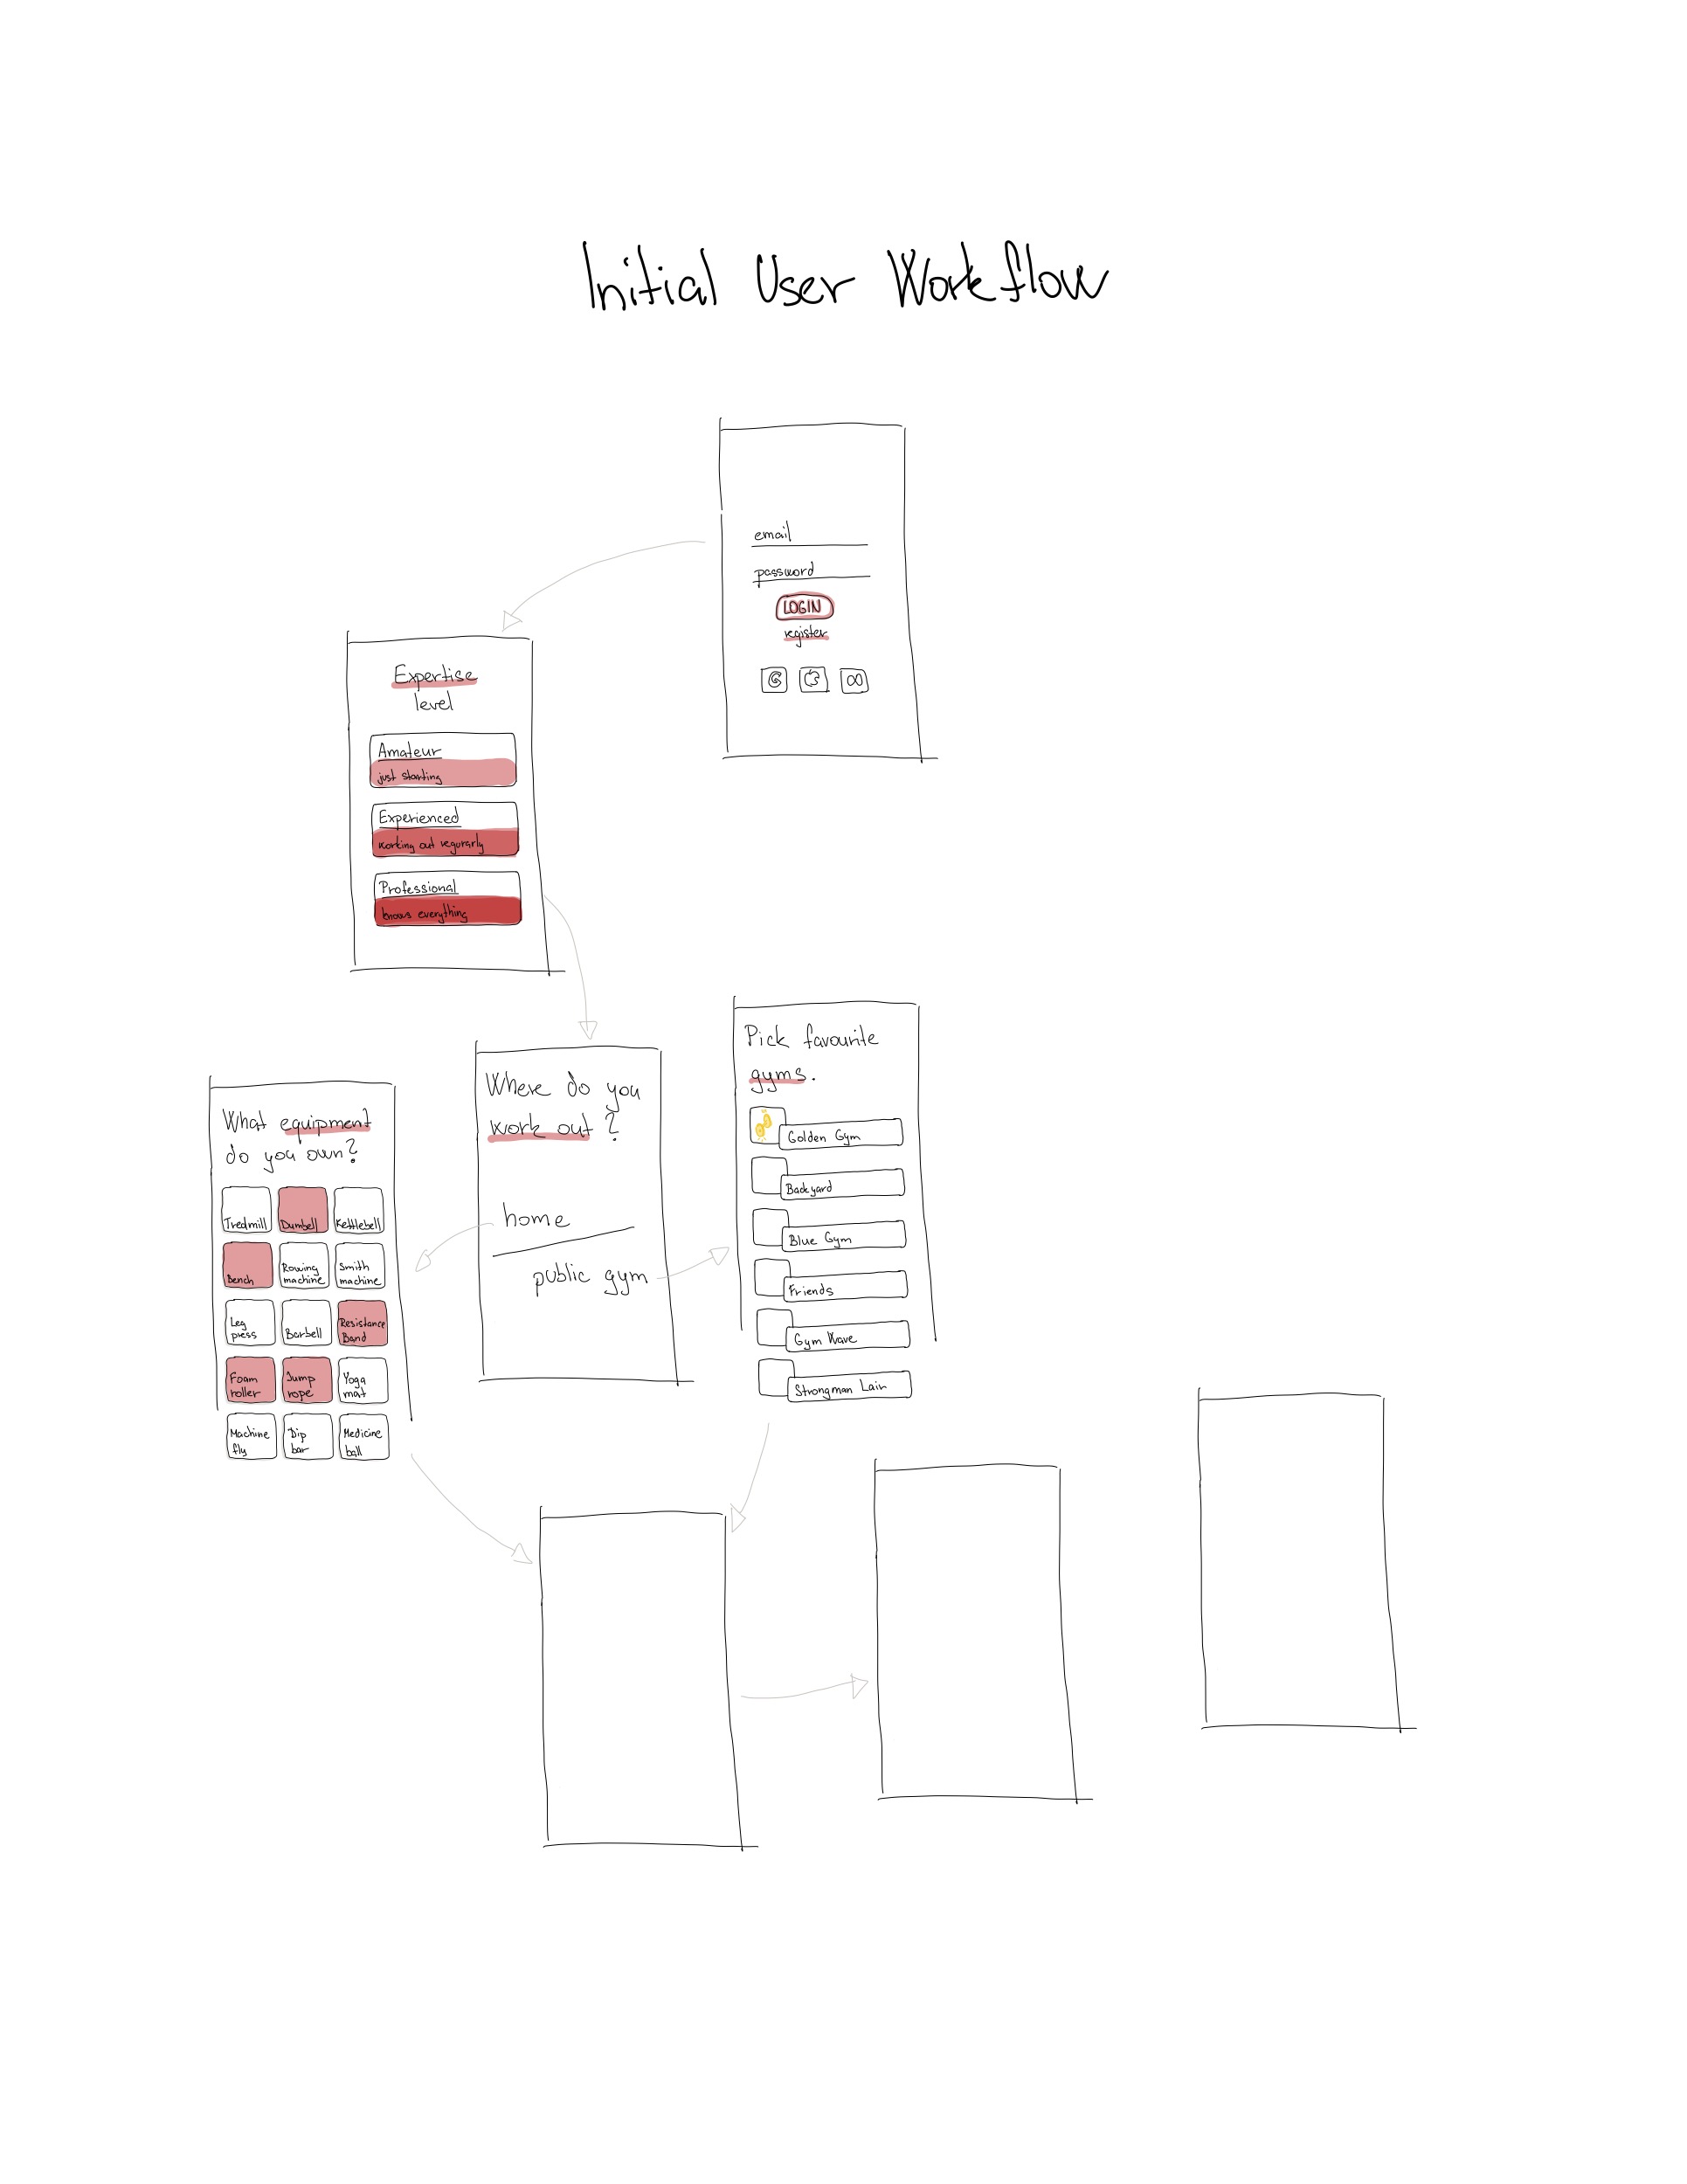 Initial User Workflow
email
password
LOGIN
register
Expertise
level
Amateur
just starting
Experienced
working out regurarly
Professional
knows everything
Where do you
work out?
home
public gym
What equipment
do you own?
Tredmill
Dumbell
Kettlebell
Bench
Rowing
machine
Smith
machine
Leg
press
Barbell
Resistance
Band
Foam
roller
Jump
rope
Yoga
mat
Machine
fly
Dip
bar
Medicine
ball
Pick favourite
gyms.
Golden Gym
Backyard
Blue Gym
Friends
Gym Wave
Strongman Lair